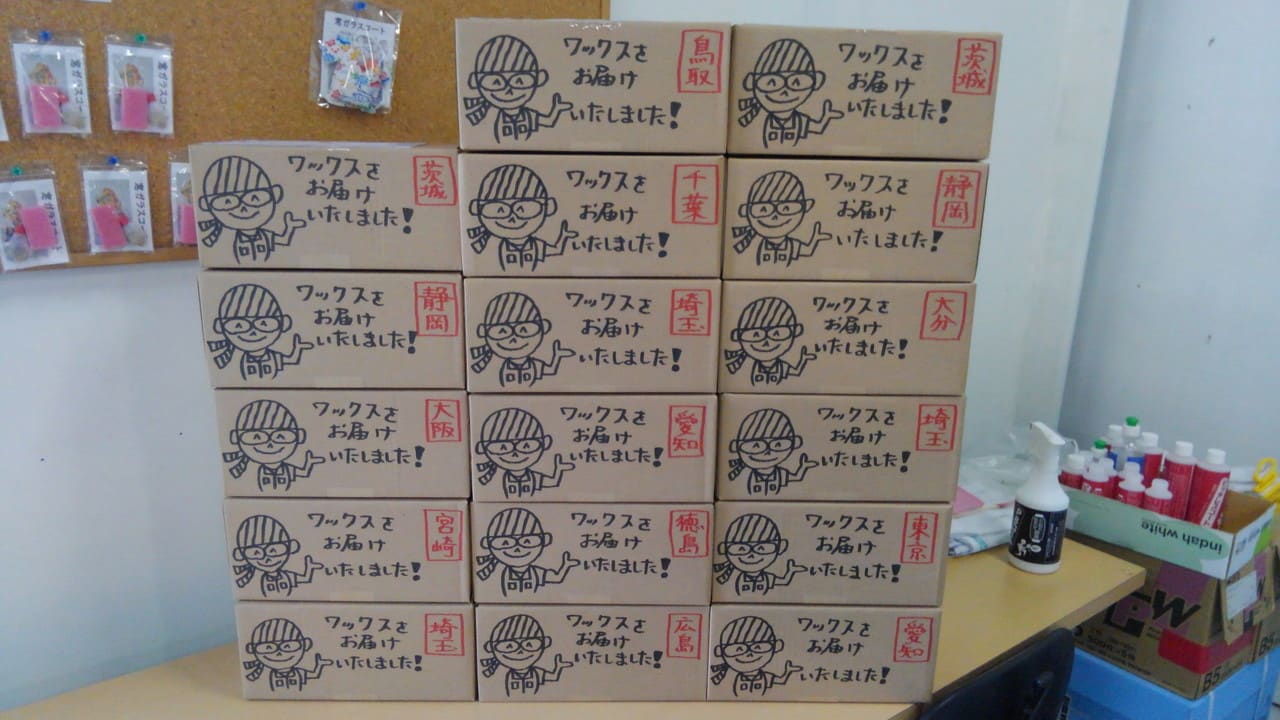 窓ガラスコート
ワックスを
お届け
いたしました!
鳥取
ワックスを
お届け
いたしました!
茨城
ワックスを
お届け
いたしました!
茨城
ワックスを
お届け
いたしました!
千葉
ワックスを
お届け
いたしました!
静岡
ワックスを
お届け
いたしました!
静岡
ワックスを
お届け
いたしました!
埼玉
ワックスを
お届け
いたしました!
大分
ワックスを
お届け
いたしました!
大阪
ワックスを
お届け
いたしました!
愛知
ワックスを
お届け
いたしました!
埼玉
ワックスを
お届け
いたしました!
宮崎
ワックスを
お届け
いたしました!
徳島
ワックスを
お届け
いたしました!
東京
ワックスを
お届け
いたしました!
埼玉
ワックスを
お届け
いたしました!
広島
ワックスを
お届け
いたしました!
愛知
indah white
B5